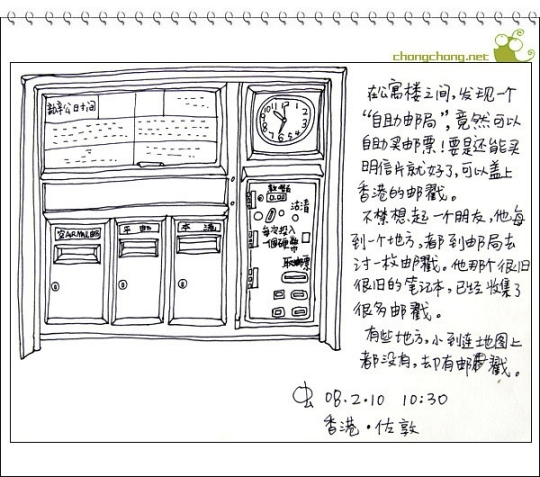 chongchong.net
在公寓楼之间，发现一个
“自助邮局”，竟然可以
自助买邮票！要是还能买
明信片就好了，可以盖上
香港的邮戳。
不禁想起一个朋友，他每
到一个地方，都到邮局去
讨一枚邮戳。他那个很旧
很旧的笔记本，已经收集了
很多邮戳。
有些地方，小到连地图上
都没有，却有邮戳。
虫 08.2.10 10:30
香港·佐敦
办公时间
空AIRMAIL邮
平邮
本港
沽清
每次投入
一個硬幣
取邮票